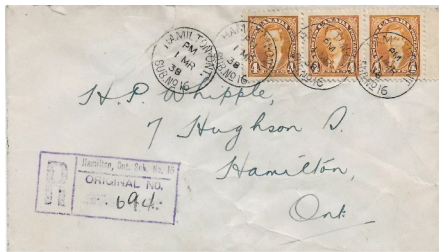 HAMILTON ONT.
PM
1 MR
38
SUB. No 16
CANADA
4
H.P. Whipple,
7 Hughson S.
Hamilton,
Ont.
R
Hamilton, Ont. Sub. No. 16
ORIGINAL NO.
694